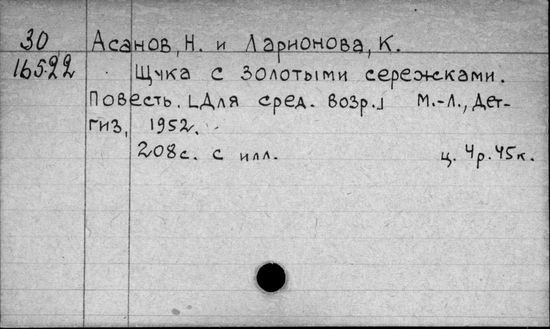 30 Асанов, Н. и Ларионова, К.
16522 Щука с золотыми сережками.
Повесть. [Для сред. возр.] М.-Л., Дет-
гиз, 1952.
208с. с илл. ц. 4р. 45к.